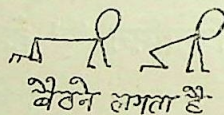 बैठने लगता है